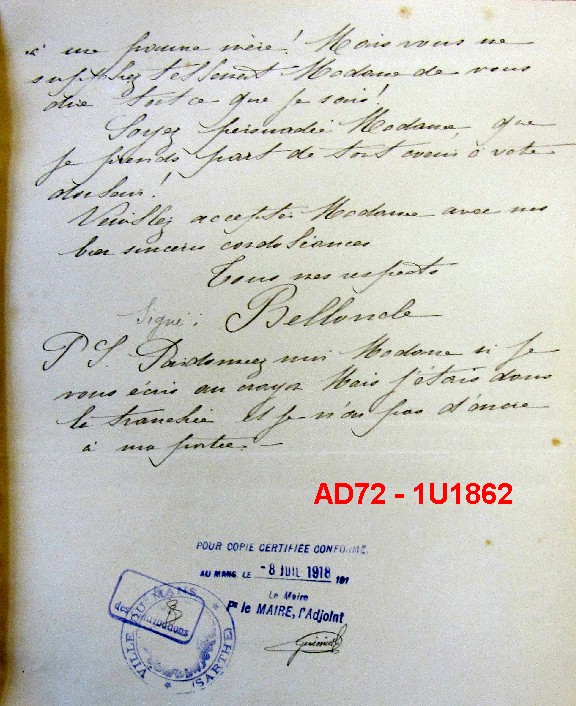 à une pauvre mère! Mais vous me
suppliez tellement Madame de vous
dire tout ce que je sais!
Soyez persuadée Madame, que
je prends part de tout coeur à votre
douleur!
Veuillez accepter Madame avec mes
bien sincères condoléances
Tous mes respects
Signé: Bellonde
PS. Pardonnez moi Madame si je
vous écris au crayon Mais j'étais dans
la tranchée et je n'ai pas d'encre
à ma portée.
AD72 - 1U1862
POUR COPIE CERTIFIÉE CONFORME,
AU MANS, LE -8 JUIL 1918 191
Le Maire
Pr le MAIRE, l'Adjoint
VILLE DU MANS
(SARTHE)